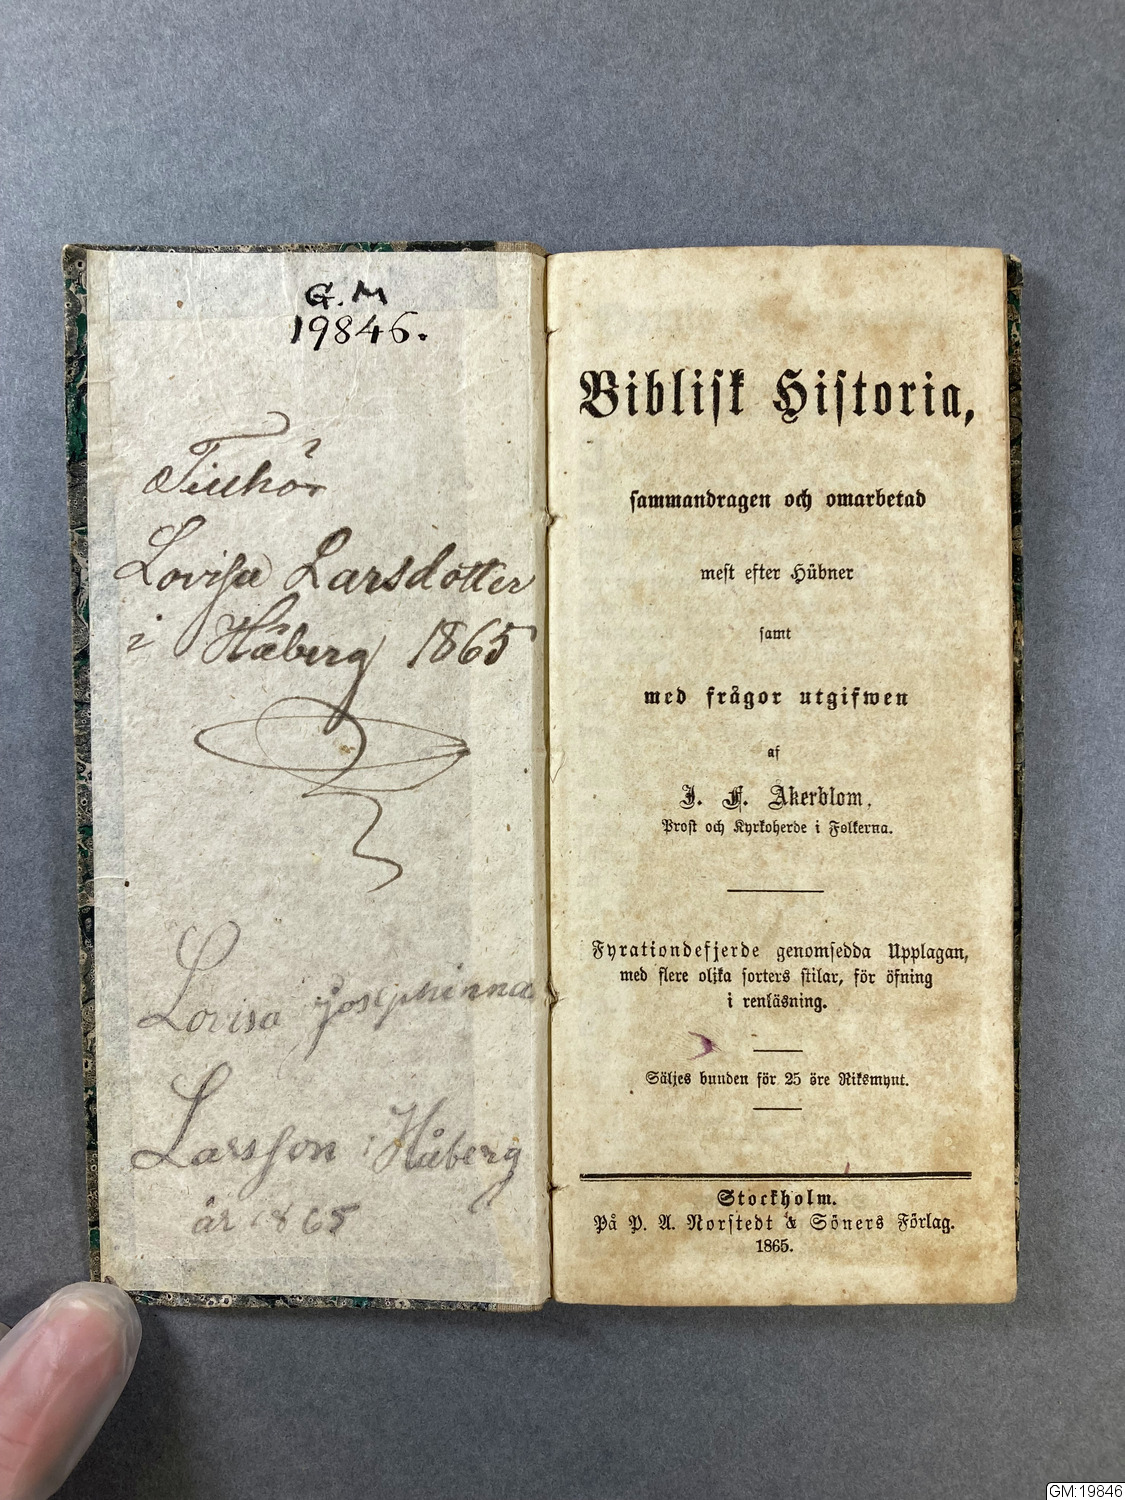 G.M
19846.
Tillhör
Lovisa Larsdotter
i Håberg 1865
Lovisa Josephinna
Larsson i Håberg
år 1865
Biblisk Historia,
sammandragen och omarbetad
mest efter Hübner
samt
med frågor utgifwen
af
J. F. Åkerblom,
Prost och Kyrkoherde i Folkerna.
Fyrationdefjerde genomsedda Upplagan,
med flere olika sorters stilar, för öfning
i renläsning.
Säljes bunden för 25 öre Riksmynt.
Stockholm.
På P. A. Norstedt & Söners Förlag.
1865.
GM:19846